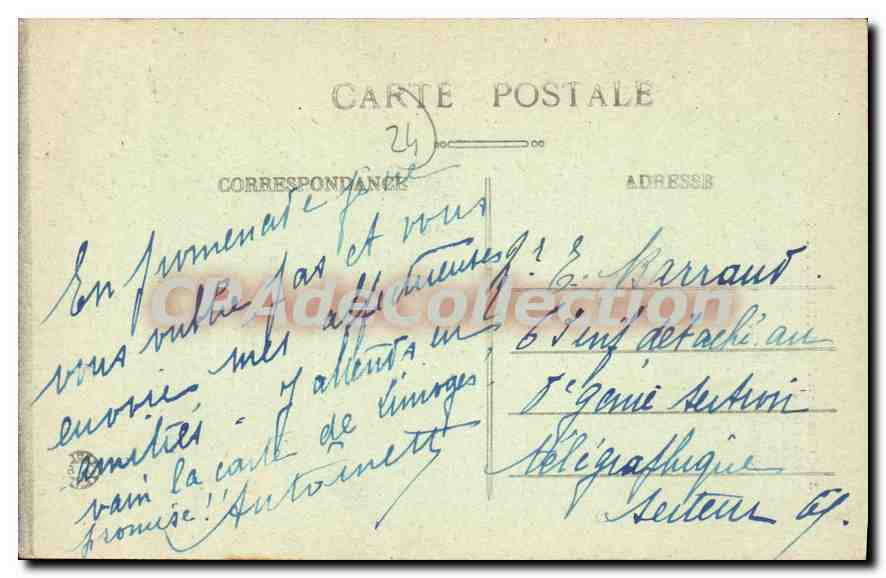 CARTE POSTALE
24
CORRESPONDANCE
ADRESSE
En promenade je ne
vous oublie pas et vous
envoie mes affectueuses
amitiés - J'attends en
vain la carte de Limoges
promise!! Antoinette
E. Barraud.
6 détaché au
8e génie section
télégraphique
secteur 65.
CPAdeCollection